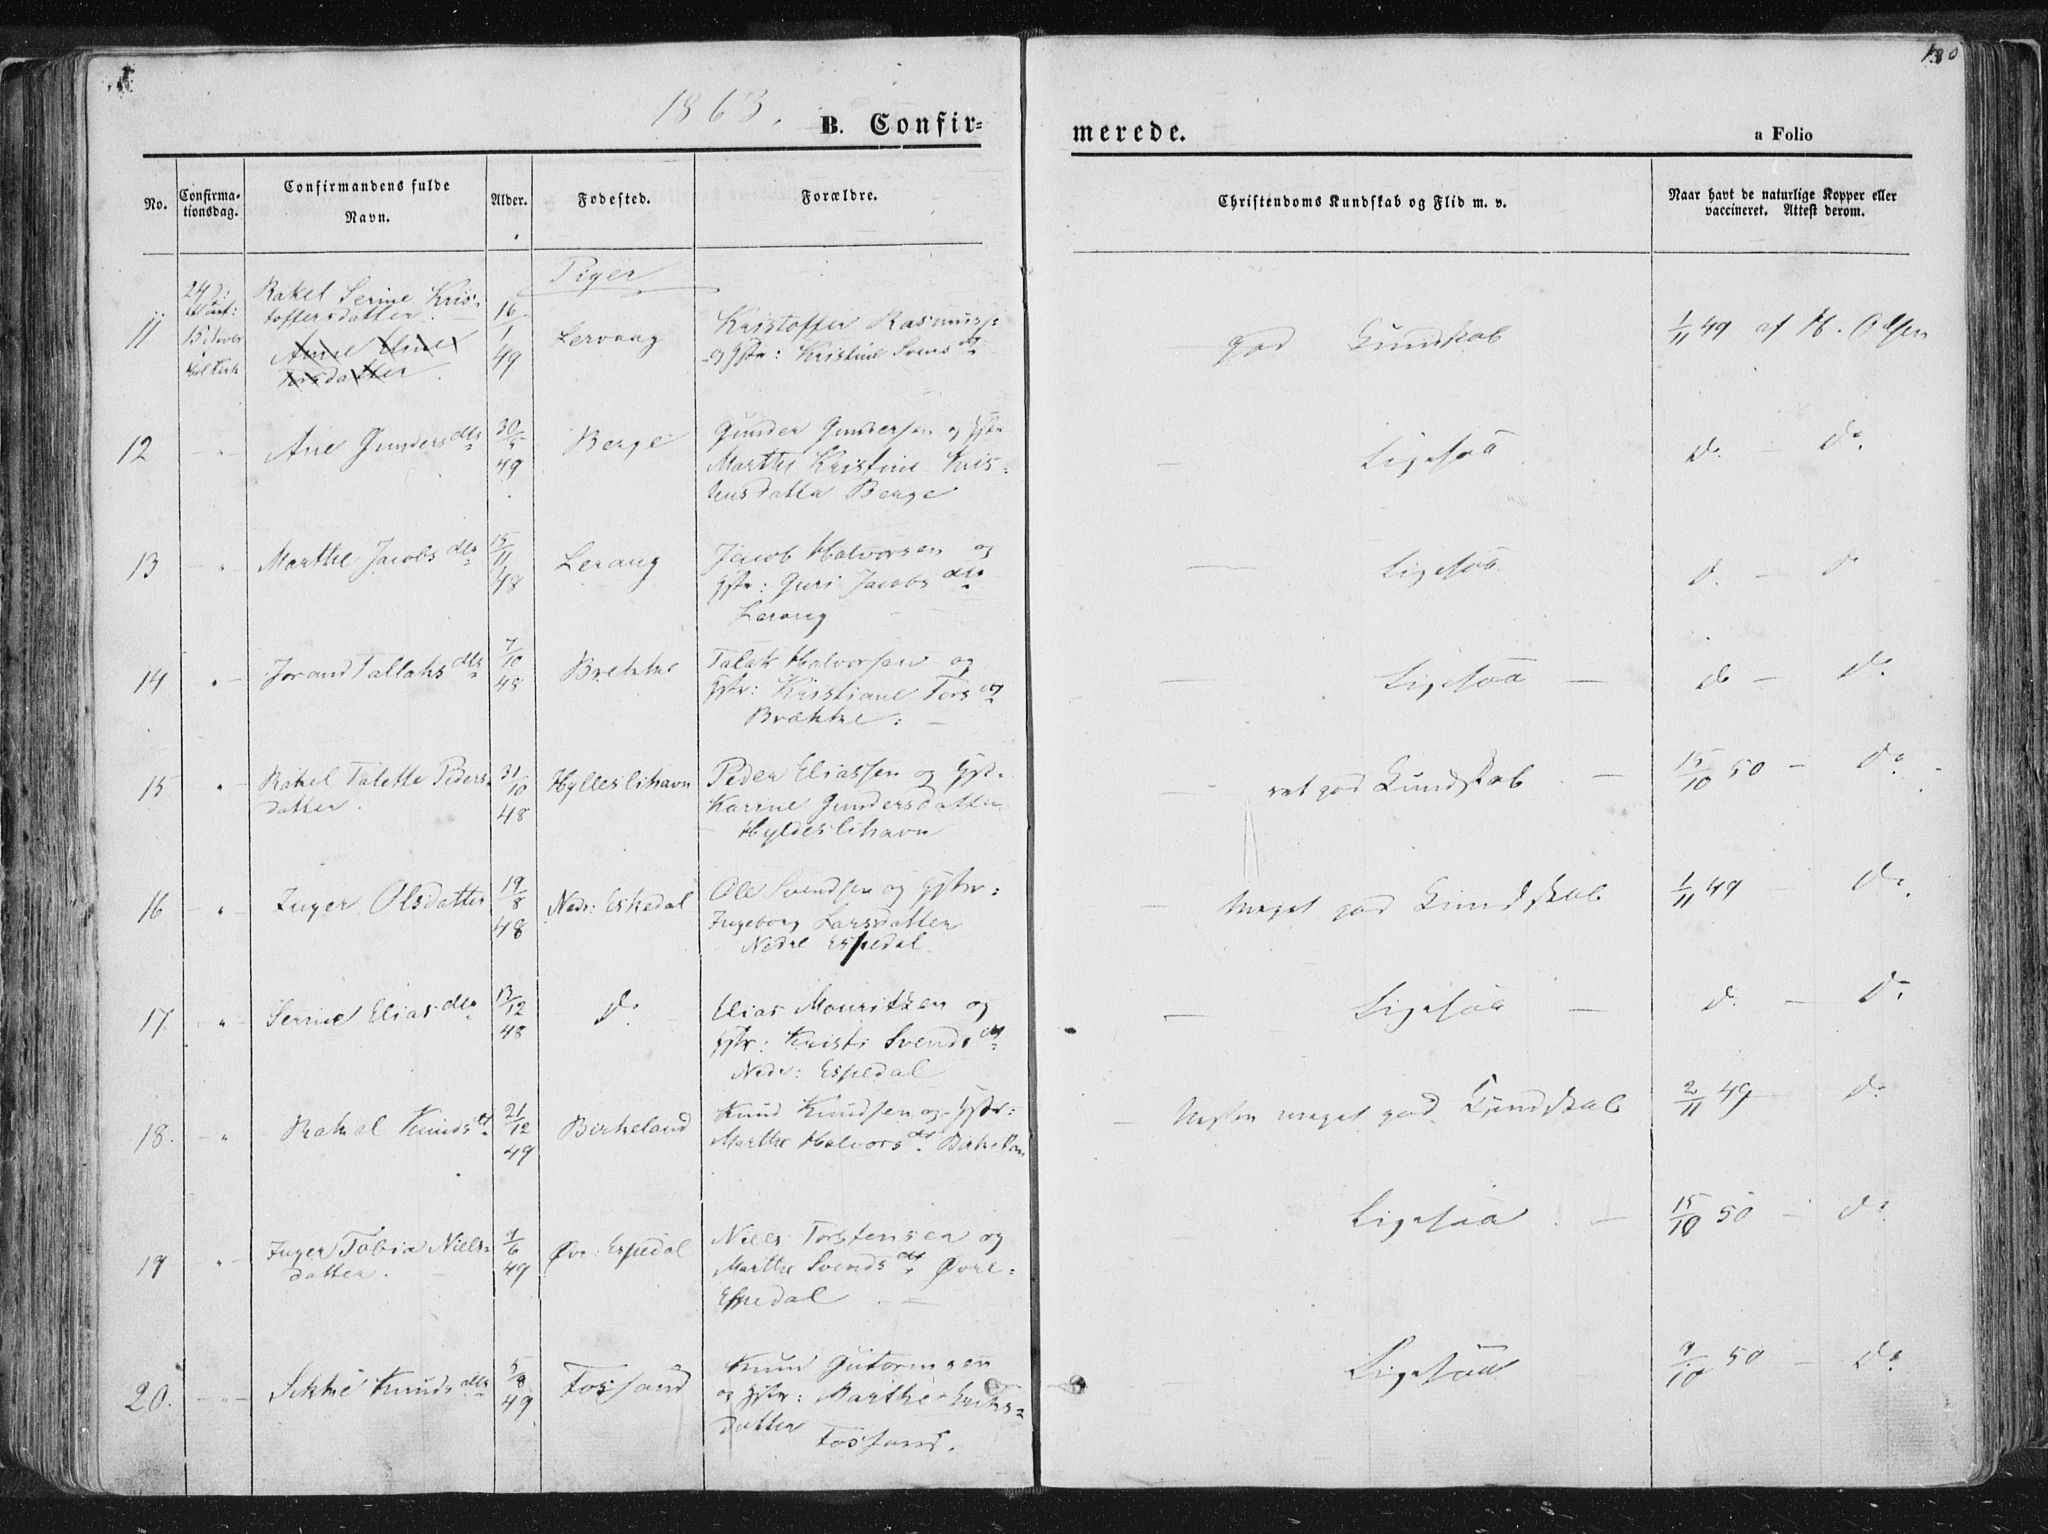 1863.
B. Confir=
merede.
a Folio
No.
Confirma-
tionsdag.
Confirmandens fulde
Navn.
Alder.
Fødested.
Forældre.
Christendoms Kundskab og Flid m. v.
Naar havt de naturlige Kopper eller
vaccineret. Attest derom.
Piger
11
Rakel Serine Kris-
toffersdatter.
16/1 49
Lervaag
Kristoffer Rasmuss:
og Hstr: Kristine Svens
god Kundskab
1/11 49 af H. Olsen
12 - " -
Ane Gundersdtr
30/5 49
Berge
Gunder Gundersen og Hstr
Marthe Kristine Kris-
tensdatter Berge
Ligesaa
do. - do.
13 - " -
Marthe Jacobsdtr
15/11 48
Lerang
Jacob Halvorsen og
Hstr: Guri Jacobsdtr
Lerang
Ligesaa
do. - do
14 " -
Jorand Tallaksdtr
7/10 48
Brekke
Talak Halvorsen og
Hstr: Kristiane Tors
Brække. -
Ligesaa -
do - do.
15 " -
Rakel Talette Peders-
datter.
31/10 48
Hylleslihavn
Peder Eliassen og Hst.
Karine Gundersdatter
Hyldeslihavn
ret god Kundskab -
15/10 50 - do. -
16 - " -
Inger Olsdatter
19/8 48
Nedr: Eskedal
Ole Svendsen og Hstr:
Ingeborg Larsdatter
Nedre Espedal
Meget god Kundskab
1/11 49 - do.
17 - " -
Serine Eliasdtr
13/12 48
do.
Elias Mouritzen og
Hstr: Kristi Svends
Nedr: Espedal
Ligesaa -
do. - do.
18. - "
Rakel Knudsdt.
21/12 49
Birkeland
Knud Knudsen og Hstr:
Marthe Halvorsdt. Birkelan
Næsten meget god Kundskab
2/11 49 - do
19 " -
Inger Tobia Niels-
datter.
Øvr: Espedal
Niels Torstensen og
Marthe Svendsdt. Øvre-
Espedal. -
Ligesaa. -
15/10 50 - do.
20. - " -
Sikke Knudsdtr
5/8 49
Fossand
Knud Gutormsen
og Hstr: Marthe Eriks-
datter
Fossand.
Ligesaa
9/10 50 - do.